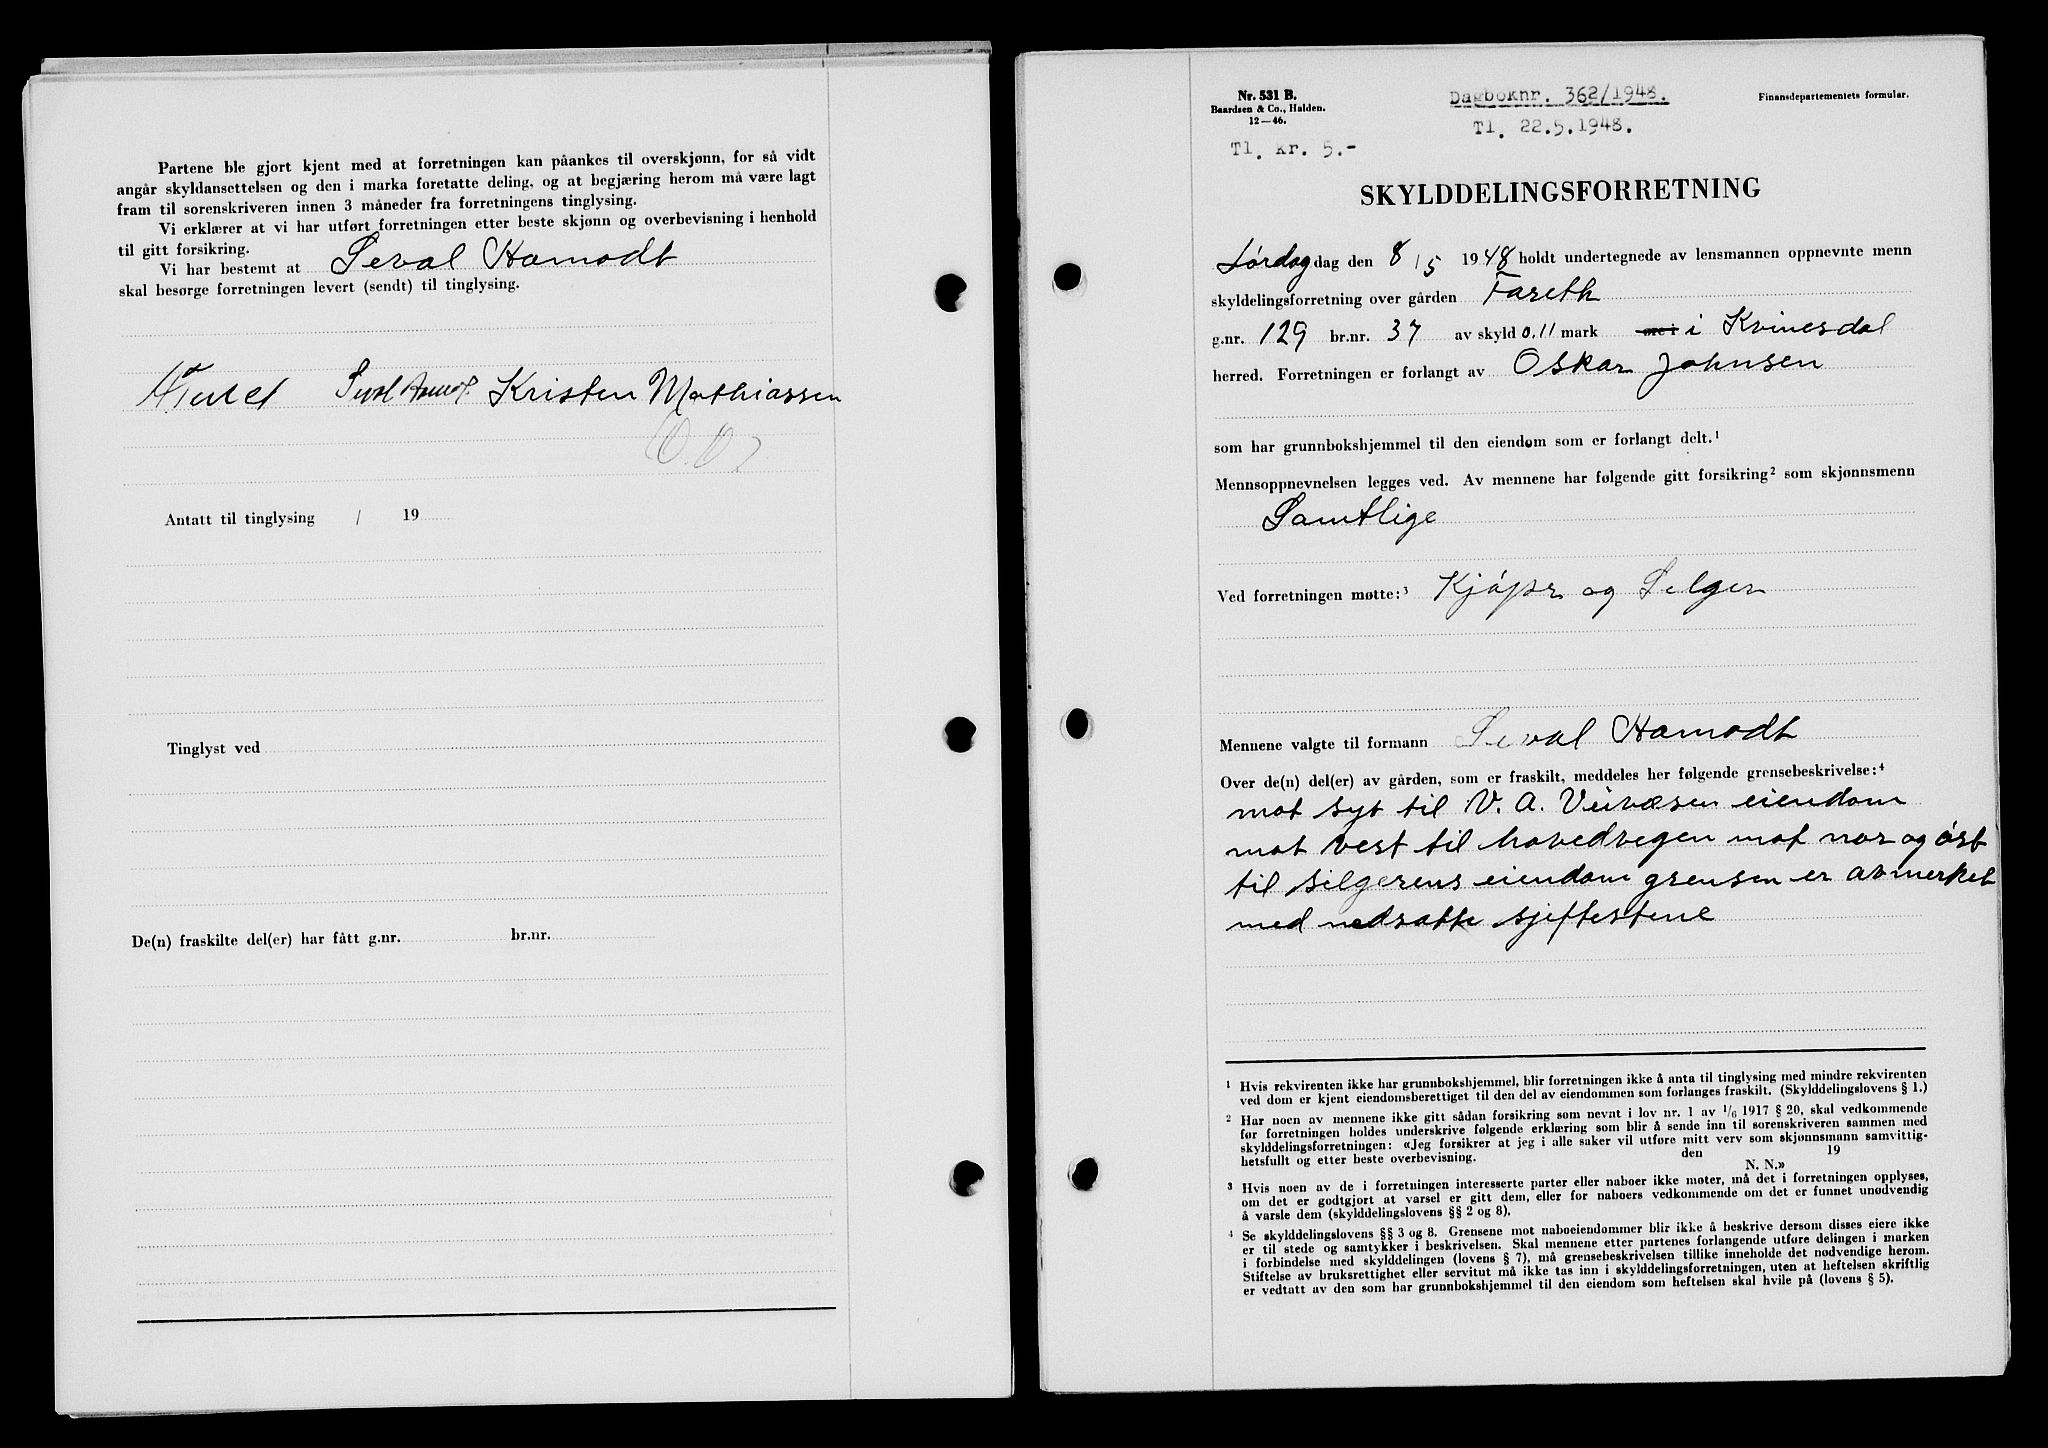 Partene ble gjort kjent med at forretningen kan påankes til overskjønn, for så vidt
angår skyldansettelsen og den i marka foretatte deling, og at begjæring herom må være lagt
fram til sorenskriveren innen 3 måneder fra forretningens tinglysing.
Vi erklærer at vi har utført forretningen etter beste skjønn og overbevisning i henhold
til gitt forsikring.
Vi har bestemt at Seval Hamodt
skal besørge forretningen levert (sendt) til tinglysing.
Kristen Mathiassen
Antatt til tinglysing / 19
Tinglyst ved
De(n) fraskilte del(er) har fått g.nr. br.nr.
Nr. 531 B.
Baardsen & Co., Halden.
12—46.
Dagboknr. 362/1948.
Tl. 22.5.1948.
Finansdepartementets formular.
Tl. Kr. 5.-
SKYLDDELINGSFORRETNING
Lørdag dag den 8/5 1948 holdt undertegnede av lensmannen oppnevnte menn
skyldelingsforretning over gården Fareth
g.nr. 129 br.nr. 37 av skyld 0.11 mark i Kvinesdal
herred. Forretningen er forlangt av Oskar Johnsen
som har grunnbokshjemmel til den eiendom som er forlangt delt.¹
Mennsoppnevnelsen legges ved. Av mennene har følgende gitt forsikring² som skjønnsmenn
Samtlige
Ved forretningen møtte:³ Kjøper og Selger
Mennene valgte til formann Seval Hamodt
Over de(n) del(er) av gården, som er fraskilt, meddeles her følgende grensebeskrivelse:⁴
mot syt til V. A. Veivæsen eiendom
mot vest til hovedvegen mot nor og øst
til silgerens eiendom grensen er avmerket
med nedsatte sjeftestene
¹ Hvis rekvirenten ikke har grunnbokshjemmel, blir forretningen ikke å anta til tinglysing med mindre rekvirenten
ved dom er kjent eiendomsberettiget til den del av eiendommen som forlanges fraskilt. (Skylddelingslovens § 1.)
² Har noen av mennene ikke gitt sådan forsikring som nevnt i lov nr. 1 av 1/6 1917 § 20, skal vedkommende
før forretningen holdes underskrive følgende erklæring som blir å sende inn til sorenskriveren sammen med
skylddelingsforretningen: «Jeg forsikrer at jeg i alle saker vil utføre mitt verv som skjønnsmann samvittig-
hetsfullt og etter beste overbevisning. den 19
N. N.»
³ Hvis noen av de i forretningen interesserte parter eller naboer ikke møter, må det i forretningen opplyses,
om det er godtgjort at varsel er gitt dem, eller for naboers vedkommende om det er funnet unødvendig
å varsle dem (skylddelingslovens §§ 2 og 8).
⁴ Se skylddelingslovens §§ 3 og 8. Grensene mot naboeiendommer blir ikke å beskrive dersom disses eiere ikke
er til stede og samtykker i beskrivelsen. Skal mennene etter partenes forlangende utføre delingen i marken
i forbindelse med skylddelingen (lovens § 7), må grensebeskrivelsen tillike inneholde det nødvendige herom.
Stiftelse av bruksrettighet eller servitut må ikke tas inn i skylddelingsforretningen, uten at heftelsen skriftlig
er vedtatt av den som har grunnbokshjemmel til den eiendom som heftelsen skal hvile på (lovens § 5).